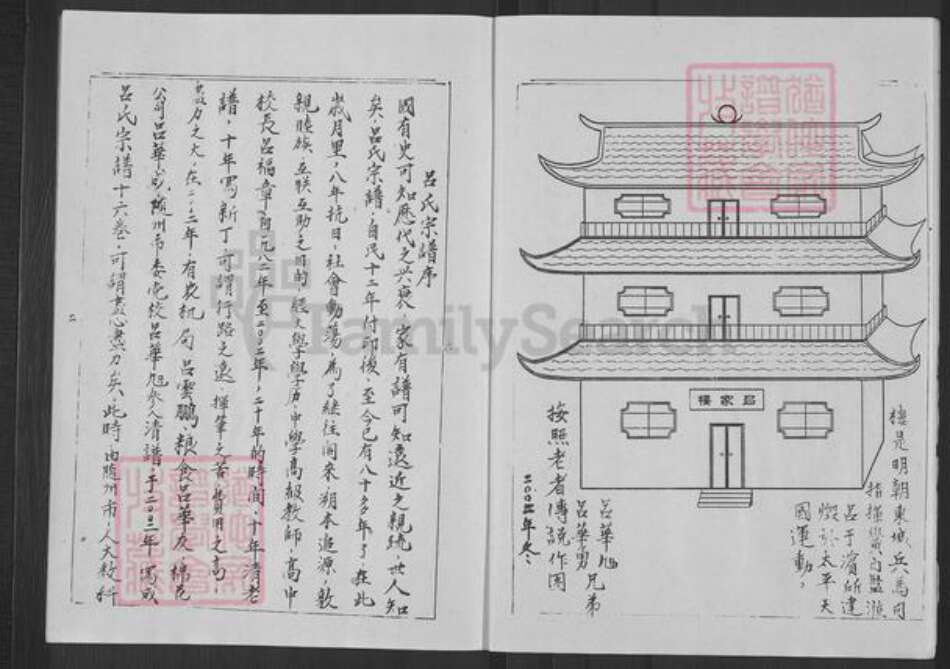 吕氏宗譜序
國有史可知歷代之興衰，家有譜可知遠近之親疏世人知
矣，吕氏宗譜，自民十二年付印後，至今已有八十多年了，在此
歲月里，八年抗日，社會動蕩，為了继往開来，朔本追源，敦
親睦族，互联互助之目的，經大學學历中學高級教師，高中
校長吕福章自元八二年至二00二年，二十年的時间，十年清老
譜，十年寫新丁可謂行路之遠，揮筆之苦，費用之高，
盡力之大，在二00二年，有农机局吕雲鹏，粮食吕華友，綿瓦
公司吕華成，隨州市委党校吕華旭参入清譜，于二00三年寫成
吕氏宗譜十六卷，可謂盡心盡力矣，此時由隨州市，人大教科
二
吕家樓
樓是明朝東城兵馬司
指揮
吕于濱所建
燬於太平天
國運動，
吕華旭
吕華勇兄弟
按照老者傳說作图
二00四年冬
FamilySearch